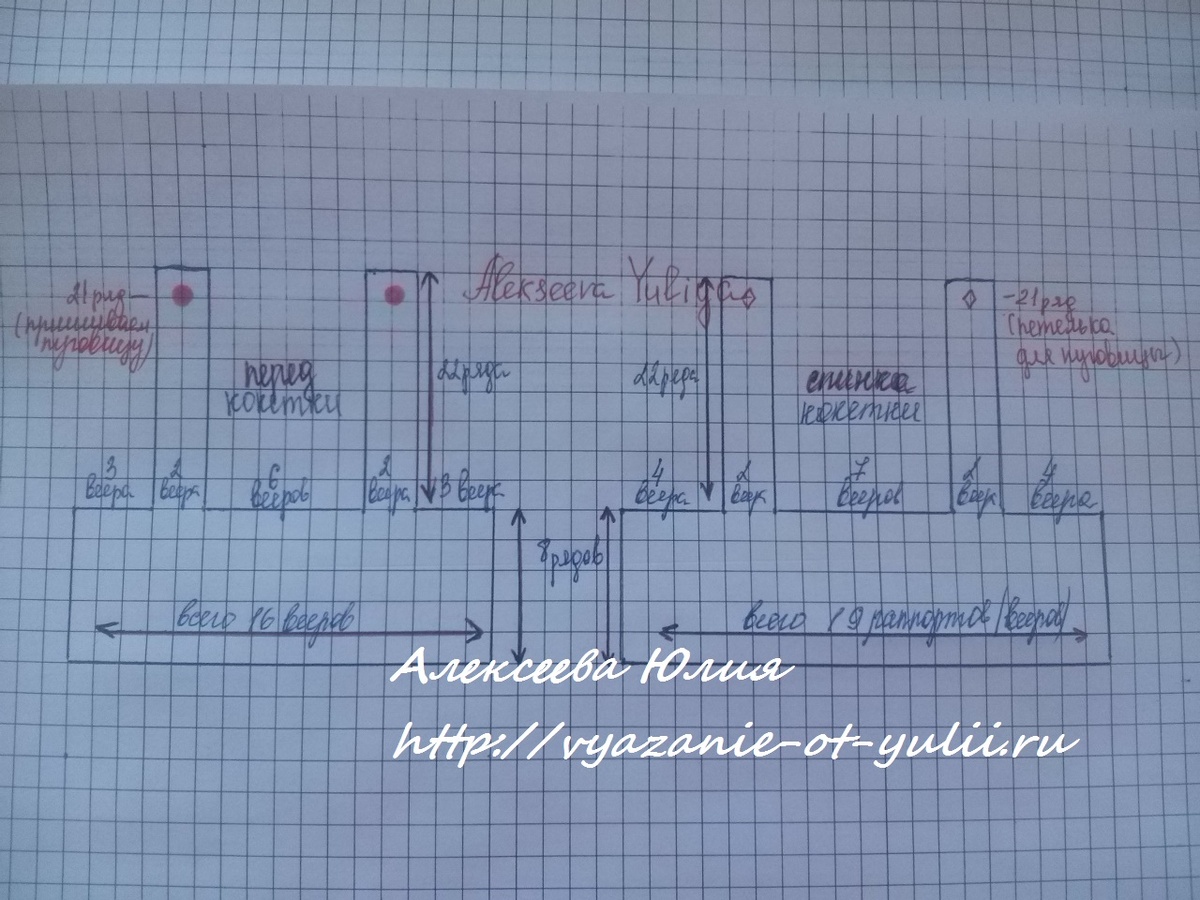 Alekseeva Yuliya
21 ряд
(пришиваем
пуговицу)
перед
кокетки
22 ряда
22 ряда
спинка
кокетки
21 ряд
(петелька
для пуговицы)
3
веера
2
веера
6
вееров
2
веера
3 веера
4
веера
2
веера
7
вееров
2
веера
4
веера
8 рядов
всего 16 вееров
всего 19 раппортов (вееров)
Алексеева Юлия
http://vyazanie-ot-yulii.ru